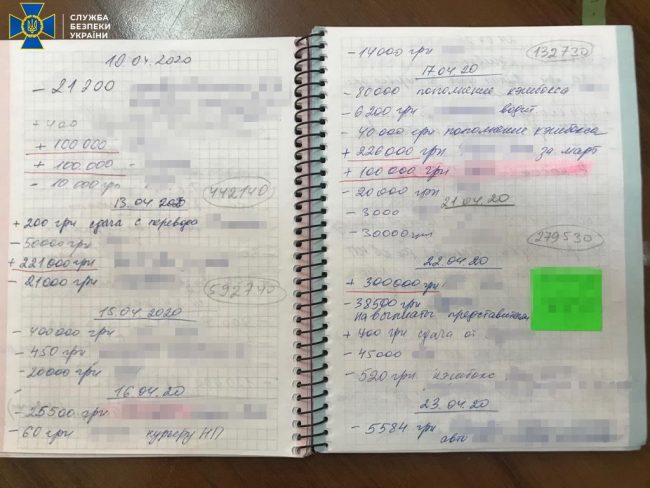 СЛУЖБА
БЕЗПЕКИ
УКРАЇНИ
10 04 2020
- 21200
+ 400
+ 100 000
+ 100.000
- 10 000 грн
442140
13.04.2020
+ 200 грн сдача с перевода
- 50000 грн
+ 221 000 грн
- 21000 грн
592740
15.04.2020
- 400000 грн
- 450 грн
- 20000 грн
16.04.20
- 25500 грн
- 60 грн курьеру НП
- 14000 грн
132730
17.04.20
- 80000 пополнение кэшбокса
- 6200 грн
- 40 000 грн пополнение кэшбокса
+ 226000 грн за март
+ 100 000 грн
- 20000 грн
21.04.20
- 3000
- 30000
279530
22.04.20
+ 300000 грн
- 38500 грн
на выплаты
+ 400 грн сдача от
- 45000
- 520 грн кэшбокс
23.04.20
- 5584 грн
авто